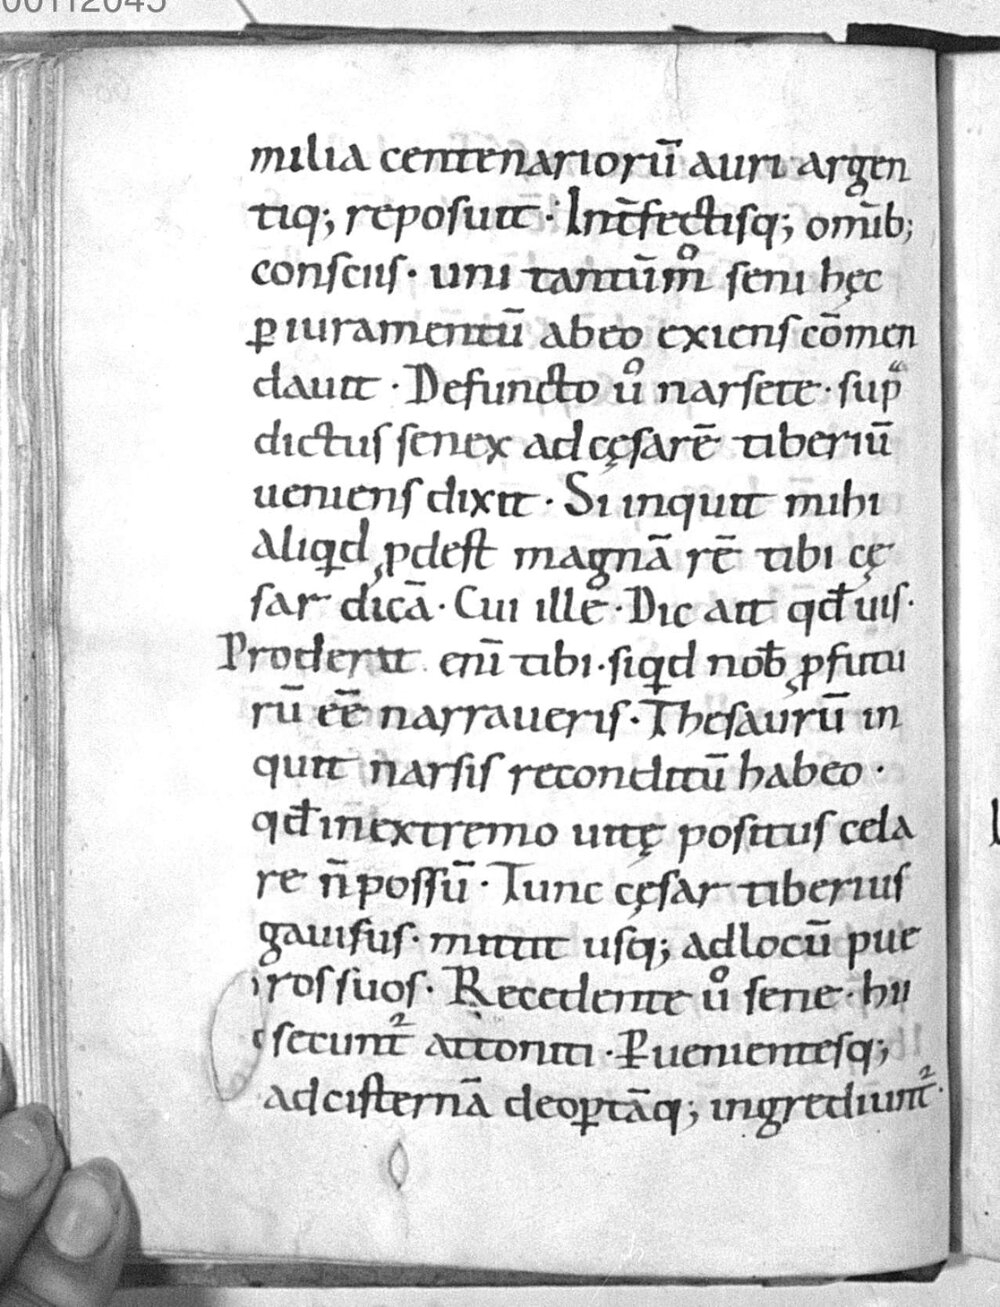 milia centenariorū auri argen
tiq; reposuit · Int̄fectisq; om̄ib;
consciis · uni tantūm̊ seni hęc
ꝑ iuramentū ab eo exiens cōmen
dauit · Defuncto ů narsete · sup̄
dictus senex ad cęsarē tiberiū
ueniens dixit · Si inquit mihi
aliqd ꝓdest magnā rē tibi cę
sar dicā · Cui ille · Dic ait qđ uis ·
Proderit eni̅ tibi · siqd nob̵ ꝓfutu
rū ēē narraueris · Thesaurū in
quit narsis reconditū habeo ·
qđ in extremo uitę positus cela
re n̄ possū · Tunc cęsar tiberius
gauisus · mittit usq; ad locū pue
ros suos · Recedente ů sene · hii
secunt᷑ attoniti · Ꝑuenientesq;
ad cisternā deoꝑtāq; ingrediunt᷑ ·